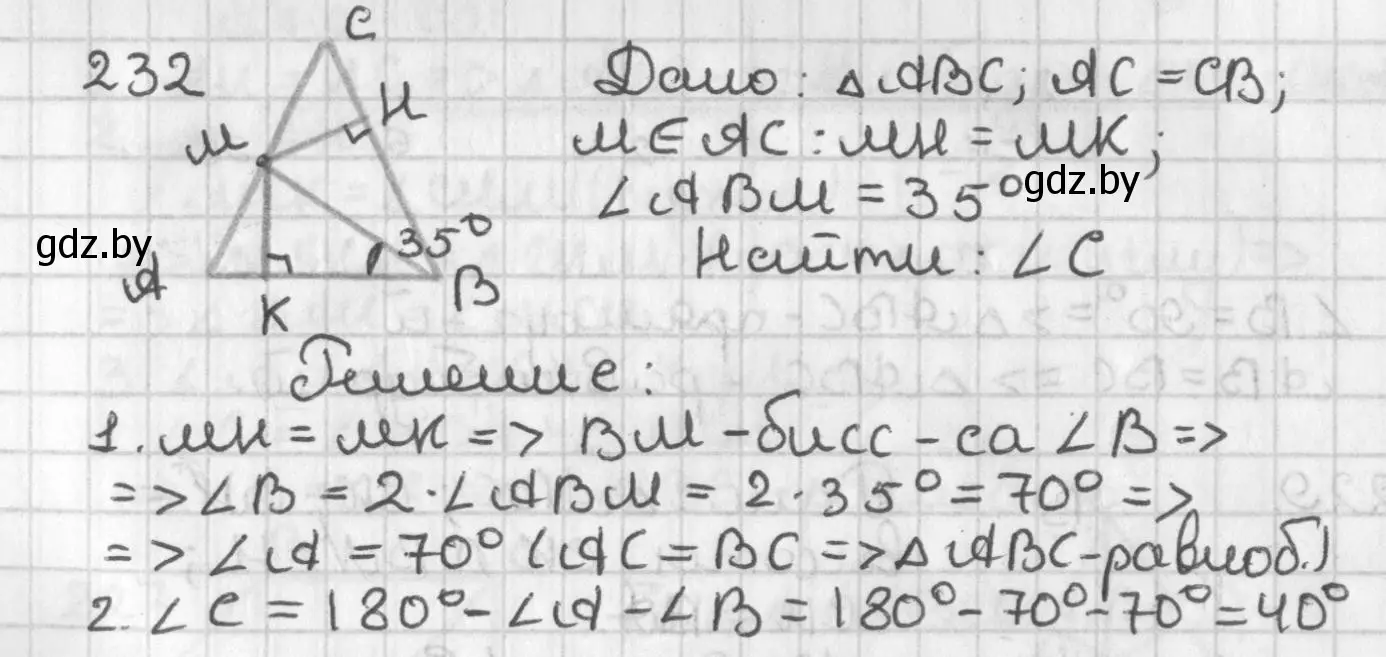 232
C
M
H
35°
A
K
B
Дано: △ABC; AC = CB;
M∈AC : MH = MK;
∠ABM = 35°
gdz.by
gdz.by
Найти: ∠C
Решение:
1. MH = MK => BM - бисс-са ∠B =>
=> ∠B = 2·∠ABM = 2·35° = 70° =>
=> ∠A = 70° (AC = BC => △ABC-равноб.)
2. ∠C = 180° - ∠A - ∠B = 180° - 70° - 70° = 40°